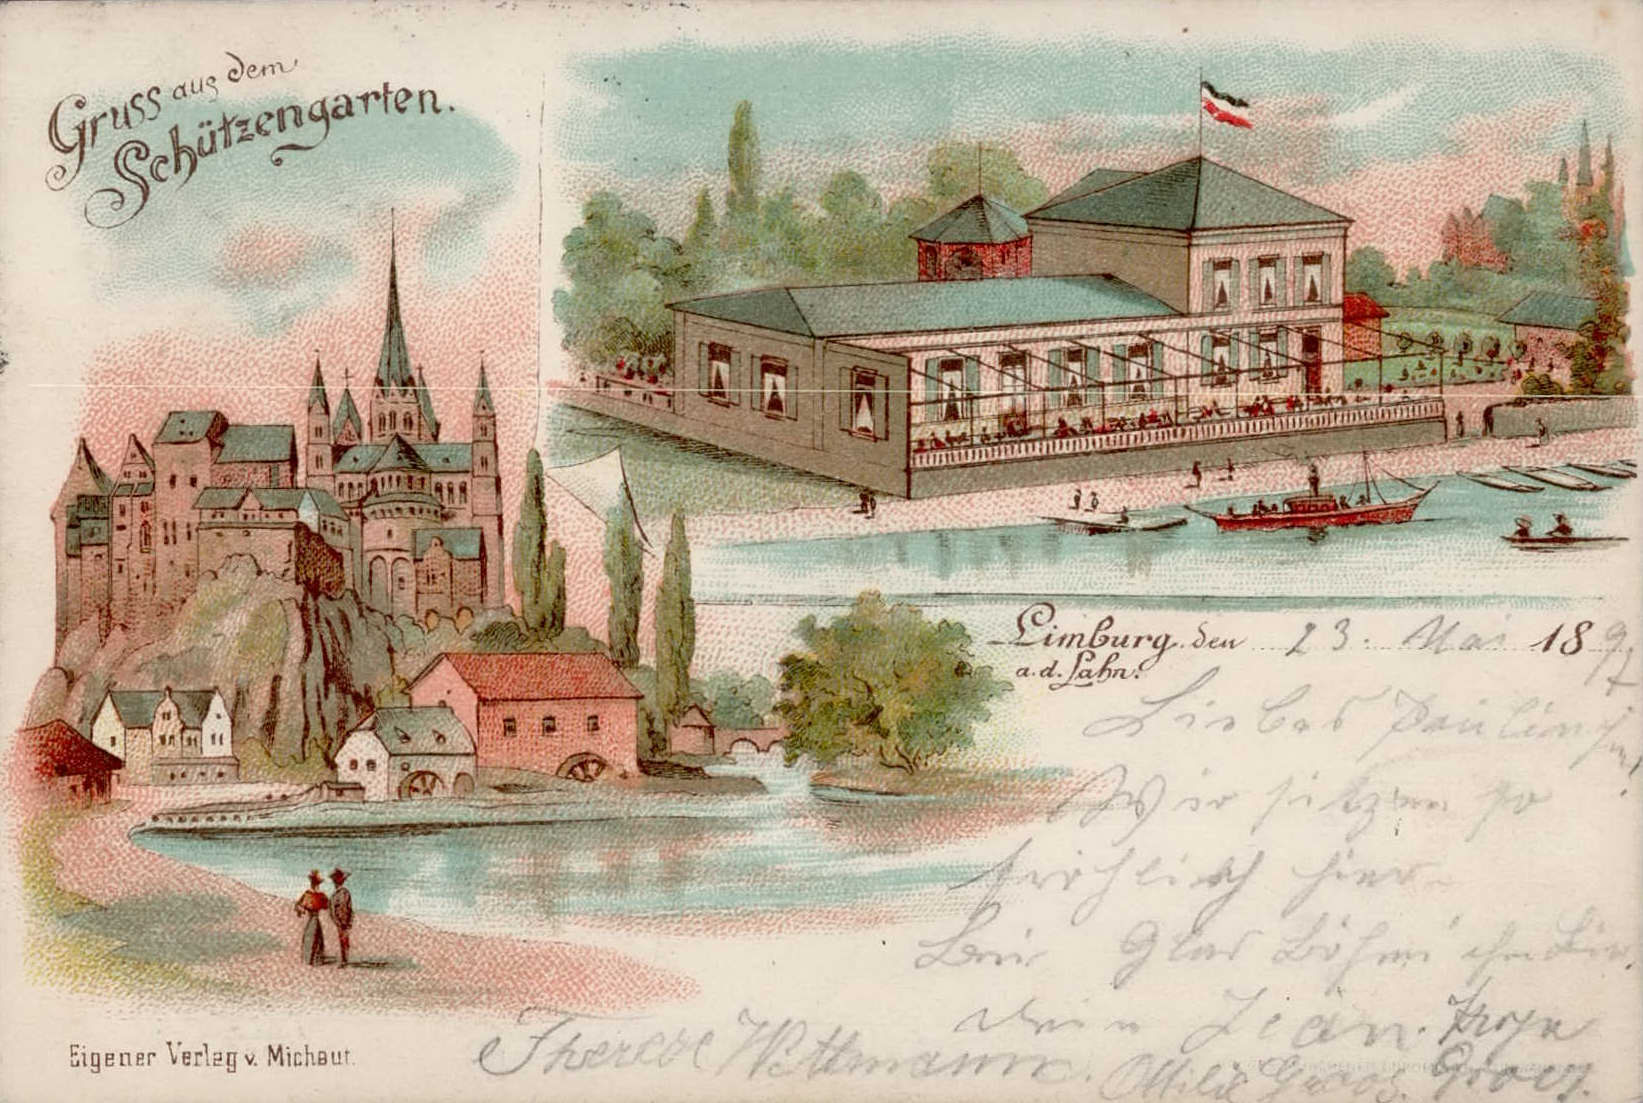 Gruss aus dem
Schützengarten.
Limburg, den 23. Mai 1897
a.d. Lahn.
Liebes Paulinchen!
Wir sitzen so
fröhlich hier
beim Glas Böhmi
Dein Jean.
Therese Wittmann. Ottilie Groos.
Eigener Verlag v. Michaut.